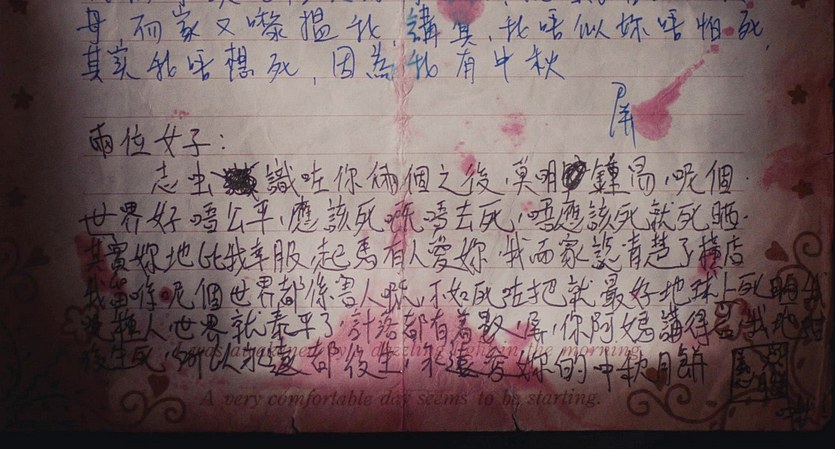 母,而家又嚟搵我,講真,我唔似妳唔怕死,
其实我唔想死,因為我有中秋
屏
兩位女子:
自從識咗你倆個之後,莫明 鍾 ,呢個
世界好唔公平,應該死 唔去死,唔應該死就死晒
其實妳地比我幸服,起馬有人愛妳 我而家 清楚了
我留喺呢個世界都係害人 ,不如死咗把就最好地球上死晒
種人,世界就泰平了,計落都有着數,屏,你阿媽講得 我地
後生死,所以永遠都後生,永遠愛妳的中秋月餅
dazzling in the morning
A very comfortable day seems to be starting.